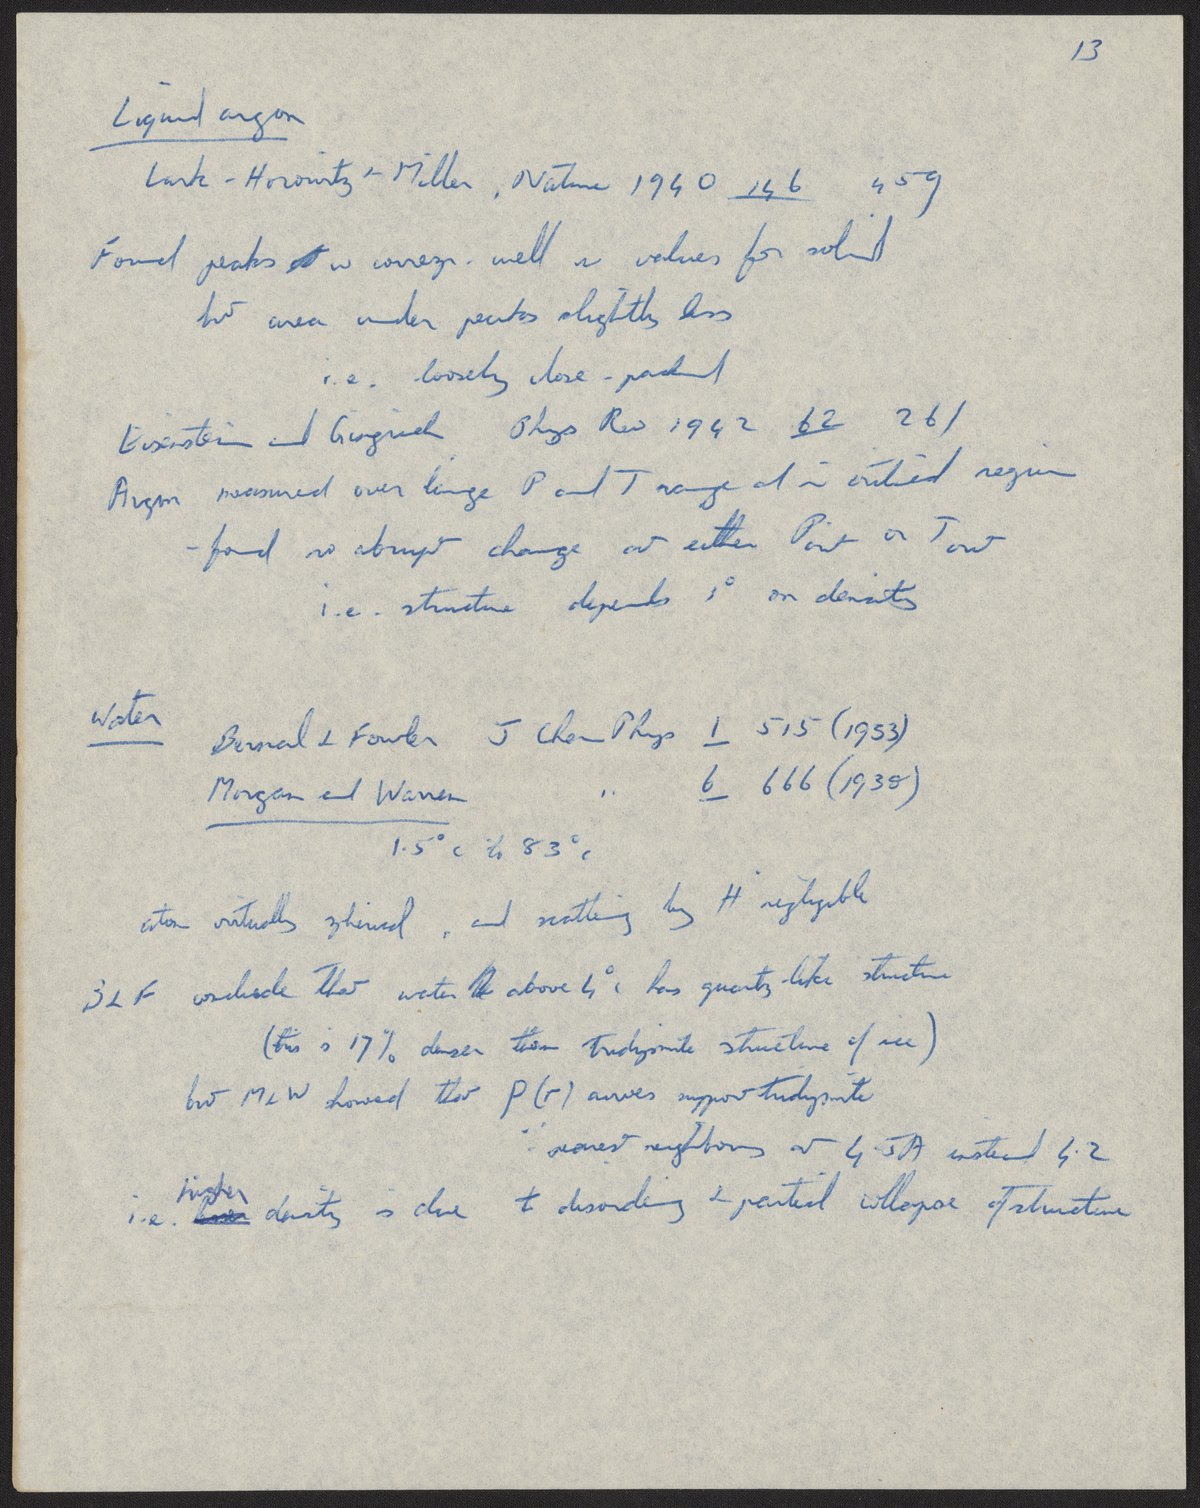 13
Liquid argon
Lark-Horowitz & Miller, Nature 1940 146 459
Found peaks corresp. well values for solid
but area under peaks slightly less
i.e. loosely close-packed
Eisenstein and Gingrich Phys Rev 1942 62 261
Argon measured over large P and T range and in critical region
- found no abrupt change at either Pcrit or Tcrit
i.e. structure depends 1° on density
Water
Bernal & Fowler J Chem Phys 1 515 (1933)
Morgan and Warren " 6 666 (1938)
1.5°C to 83°C
atom virtually spherical, and scattering by H negligible
B & F conclude that water above 4°C has quartz-like structure
(this is 17% denser than tridymite structure of ice)
but M & W showed that ρ(r) curves support tridymite
∵ nearest neighbours at 4.5A instead 4.2
i.e. higher density is due to disordering & partial collapse of structure